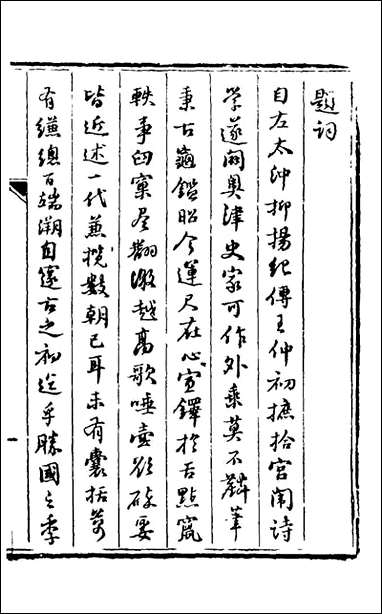 題詞
自左太冲抑揚紀傳王仲初摭拾宮闈詩
學遂闢奧津史家可作外乘莫不麟筆
秉古龜鑑昭今運尺在心宣鐸於舌點竄
軼事臼窠翻激越高歌唾壺欲碎要
皆近述一代兼攬數朝已耳未有囊括萬
有縑總百端溯自邃古之初迄乎勝國之季